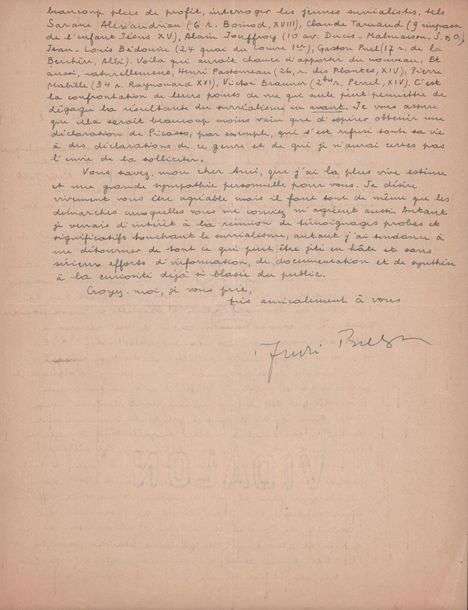 beaucoup plus de profit, interroger les jeunes surréalistes, tels
Sarane Alexandrian (6 r. Boinod, XVIII), Claude Tarnaud (9 impasse
de l'enfant Jésus XV), Alain Jouffroy (10 av. Ducis. Malmaison, S&O),
Jean-Louis Bédouin (24 quai du Louvre 1er), Gaston Puel (17 r. de la
Berchère, Albi). Voilà qui aurait chance d'apporter du nouveau. Et
aussi, naturellement, Henri Pastoureau (26, r. des Plantes, XIV), Pierre
Mabille (34 r. Raynouard XVI), Victor Brauner (2 bis r. Perrel, XIV). C'est
la confrontation de leurs points de vue qui seule peut permettre de
dégager la résultante du surréalisme en avant. Je vous assure
que cela serait beaucoup moins vain que d'espérer obtenir une
déclaration de Picasso, par exemple, qui s'est refusé toute sa vie
à des déclarations de ce genre et de qui je n'aurai certes pas
l'envie de la solliciter.
Vous savez, mon cher ami, que j'ai la plus vive estime
et une grande sympathie personnelle pour vous. Je désire
vivement vous être agréable mais il faut tout de même que les
démarches auxquelles vous me conviez m'agréent aussi. Autant
je verrais d'intérêt à la réunion de témoignages probes et
significatifs touchant le surréalisme, autant j'ai tendance à
me détourner de tout ce qui peut être jeté en hâte et sans
sérieux efforts d'information, de documentation et de synthèse
à la curiosité déjà si blasée du public.
Croyez-moi, je vous prie,
très amicalement à vous